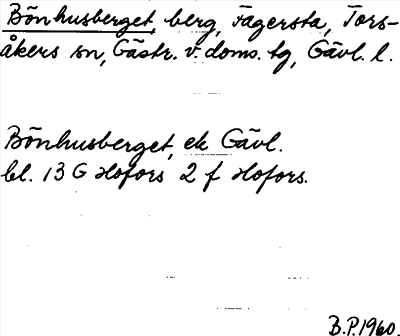 Bönhusberget, berg, Fagersta, Tors-
åkers sn, Gästr. v. doms. tg, Gävl. l.
Bönhusberget, ek Gävl.
bl. 13 G Hofors 2 f Hofors.
B.P. 1960.